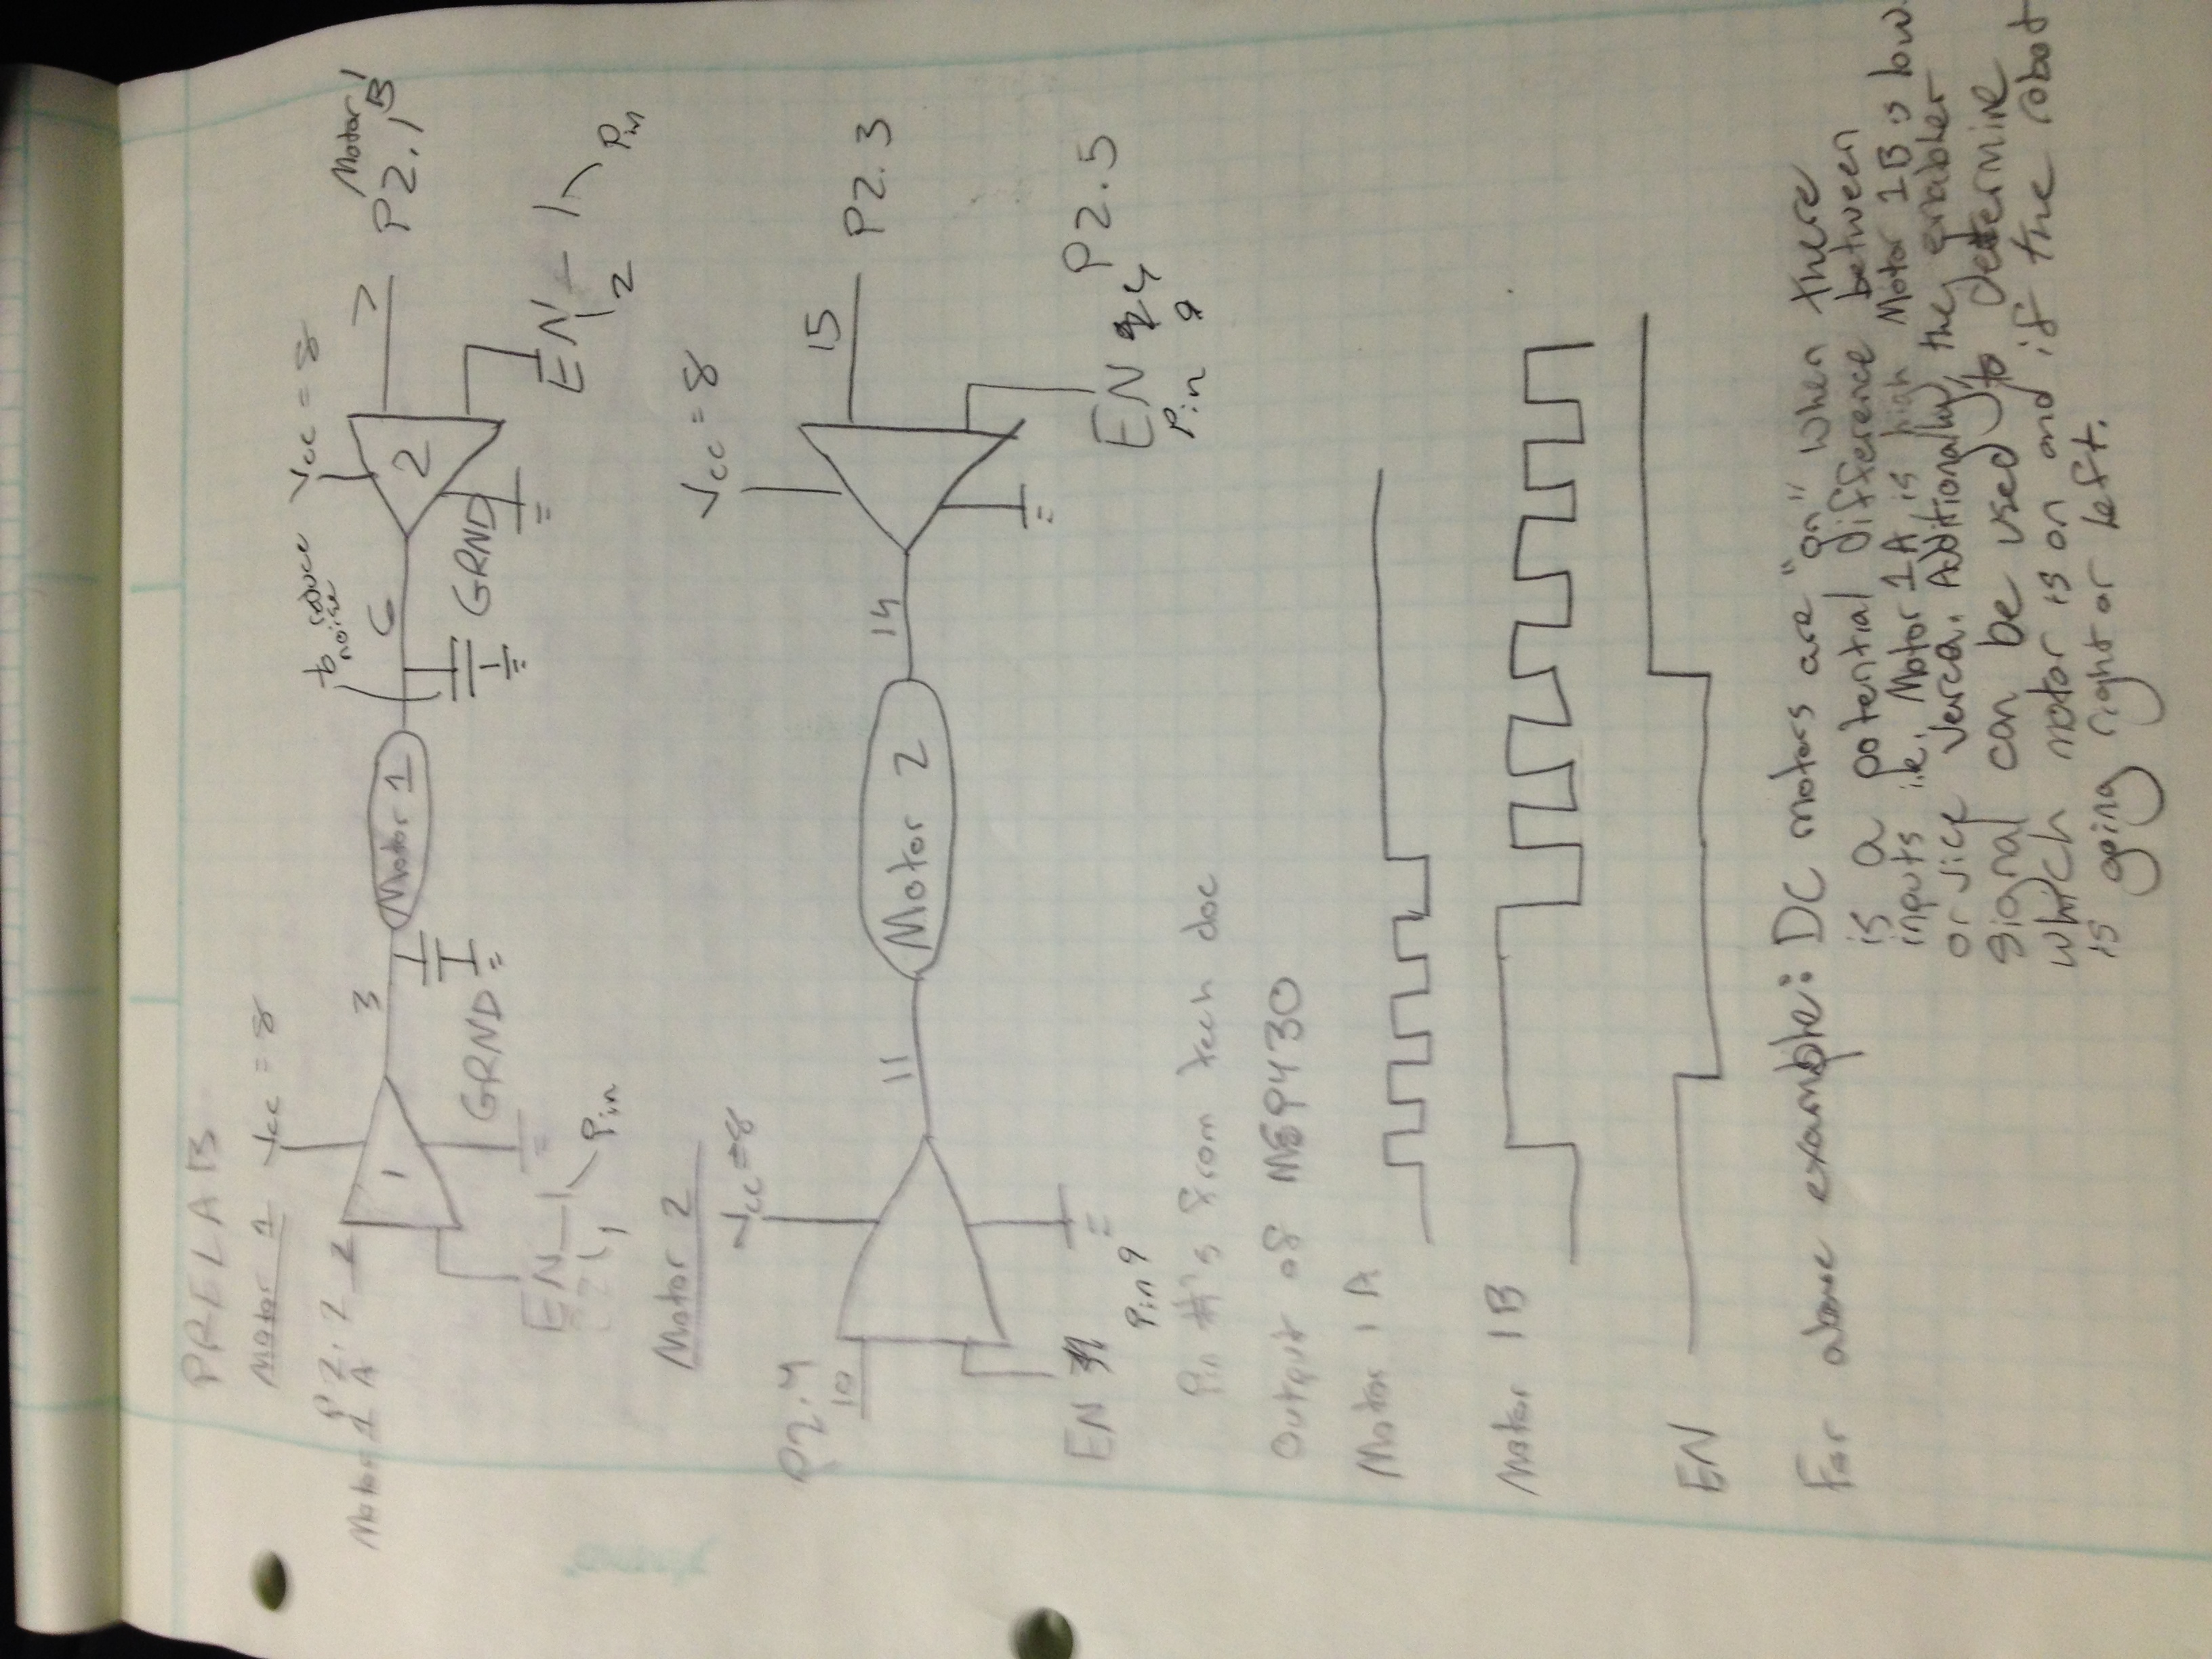 PRELAB
Motor 1 Vcc = 8
P2.2 2
Motor 1 A
1
3
Motor 1
to reduce
noise
6
Vcc = 8
2
7
Motor 1
B
P2.1
GRND
GRND
EN_1
1
Pin
EN - 1
2
Pin
Motor 2
Vcc = 8
Vcc = 8
P2.4
10
11
Motor 2
14
15
P2.3
EN
Pin 9
P2.5
EN 4
Pin 9
Pin #'s from tech doc
Output of MSP430
Motor 1 A
Motor 1B
EN
For above example: DC motors are "on" when there
is a potential difference between
inputs i.e. Motor 1A is high Motor 1B is low
or vice verca. Additionally, the enabler
signal can be used to determine
which motor is on and if the robot
is going right or left.